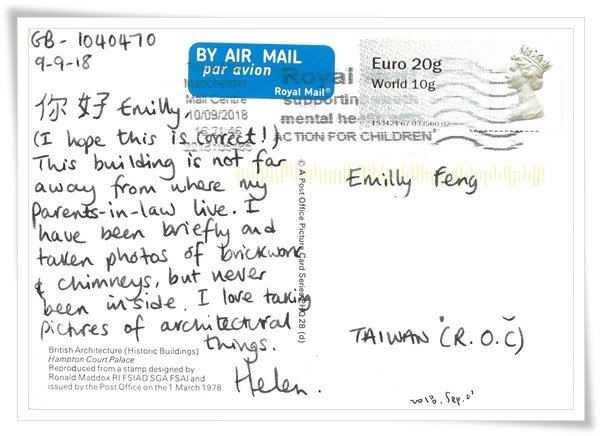 GB - 1040470
9-9-18
你好 Emilly,
(I hope this is correct!)
This building is not far
away from where my
parents-in-law live. I
have been briefly and
taken photos of brickwork
& chimneys, but never
been inside. I love taking
pictures of architectural
things.
Helen.
British Architecture (Historic Buildings)
Hampton Court Palace
Reproduced from a stamp designed by
Ronald Maddox RI FSIAD SGA FSAI and
issued by the Post Office on the 1 March 1978
© A Post Office Picture Card Series
28 (d)
BY AIR MAIL
par avion
Royal Mail®
Manchester
Mail Centre
10/09/2018
Royal
supportin
mental he
ACTION FOR CHILDREN
Euro 20g
World 10g
Emilly Feng
TAIWAN (R.O.C)